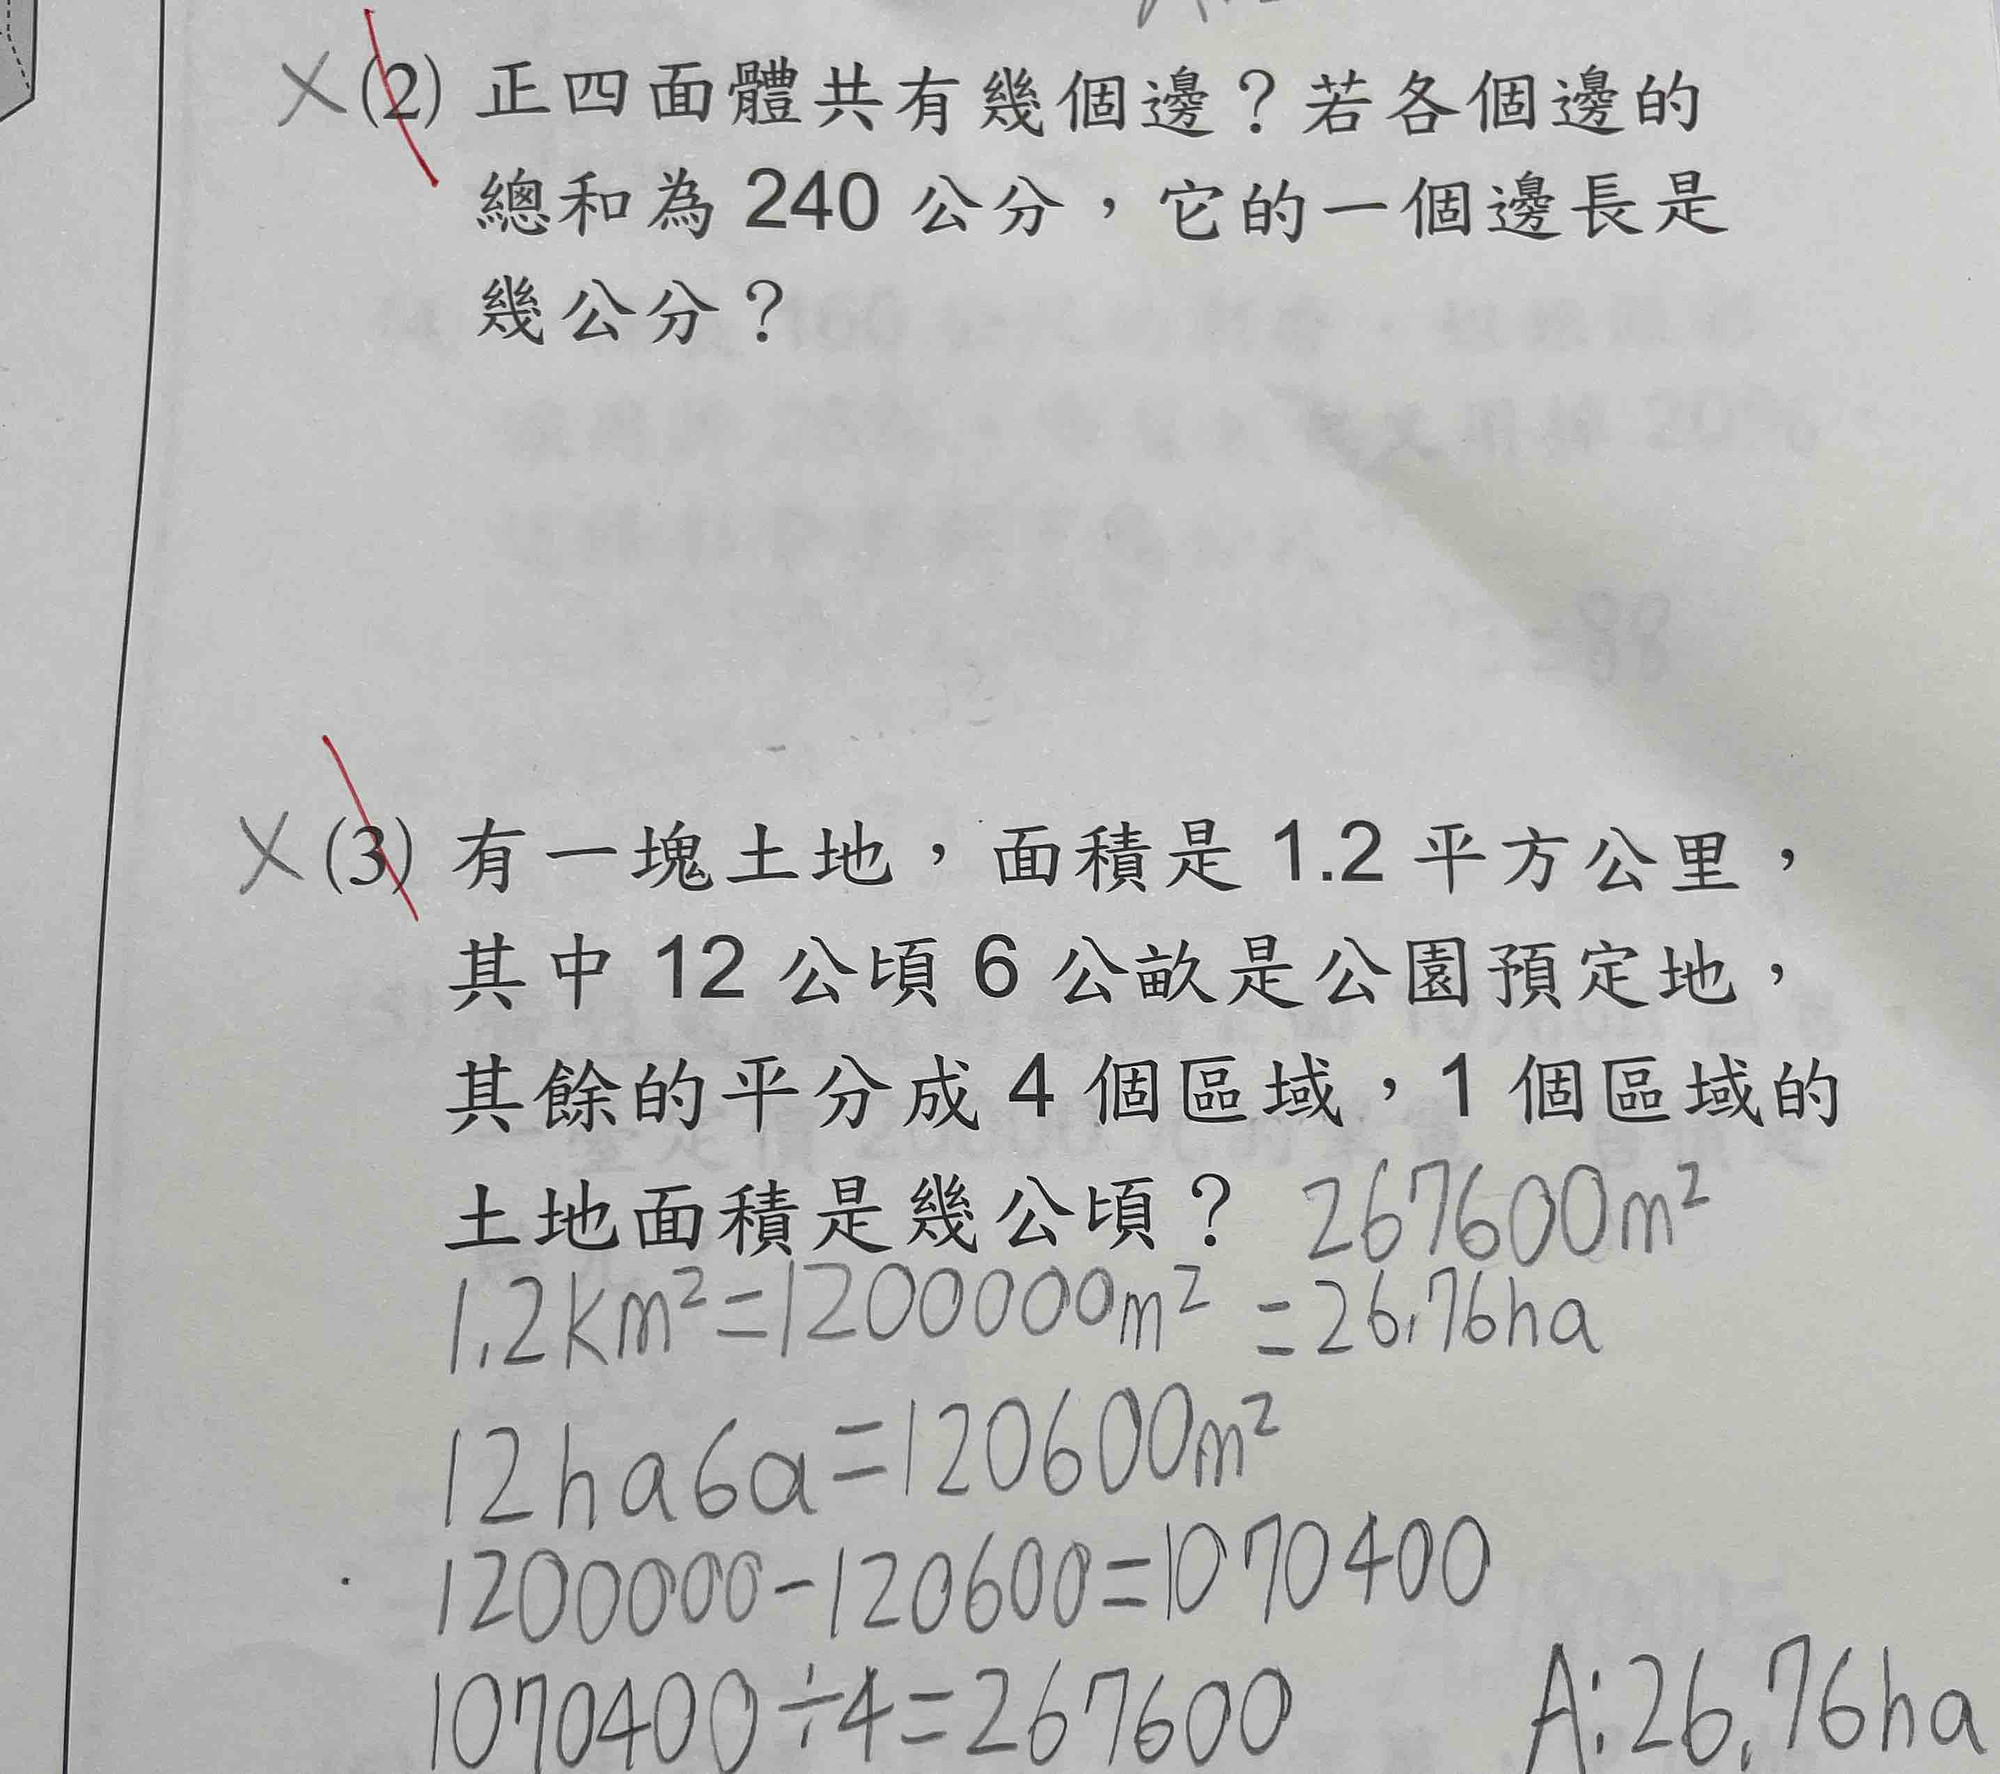 ×(2) 正四面體共有幾個邊？若各個邊的
總和為 240 公分，它的一個邊長是
幾公分？
×(3) 有一塊土地，面積是 1.2 平方公里，
其中 12 公頃 6 公畝是公園預定地，
其餘的平分成 4 個區域，1 個區域的
土地面積是幾公頃？ 267600m²
1.2km²=1200000m² =26.76ha
12ha6a=120600m²
1200000-120600=1070400
1070400÷4=267600 A:26.76ha